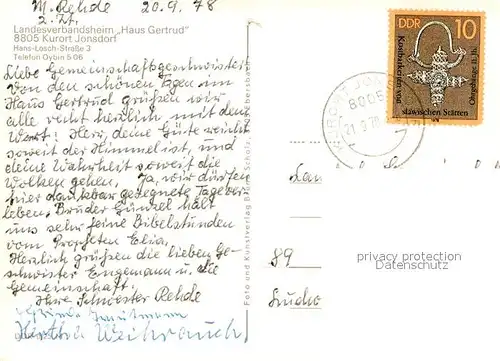 M. Rehde 20.9.78
z. Zt.
Landesverbandsheim „Haus Gertrud“
8805 Kurort Jonsdorf
Hans-Losch-Straße 3
Telefon Oybin 5 06
Liebe Gemeinschaftsgeschwister
Von den schönen Tagen im
Haus Gertrud grüßen wir
alle recht herzlich mit dem
Wort: Herr, deine Güte reicht
soweit der Himmel ist, und
deine Wahrheit soweit die
Wolken gehen. Ja, wir dürfen
hier dankbar gesegnete Tage ver-
leben. Bruder Günzel hält
uns sehr feine Bibelstunden
vom Propheten Elia.
Herzlich grüßen die lieben Ge-
schwister Engemann u. die
Gemeinschaft.
Ihre Schwester Rehde
Weihrauch
Foto und Kunstverlag Scholz, Ebersbach
DDR 10
Kostbarkeiten von
slawischen Stätten
Ohrgehänge 11. Jh.
8805
KURORT
89
privacy protection
Datenschutz